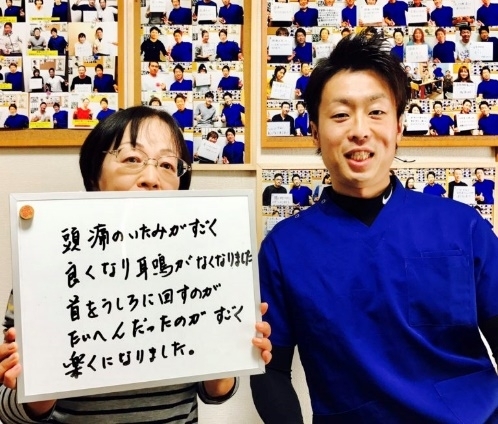 頭痛のいたみがすごく
良くなり耳鳴がなくなりました
首をうしろに回すのが
たいへんだったのが すごく
楽くになりました。